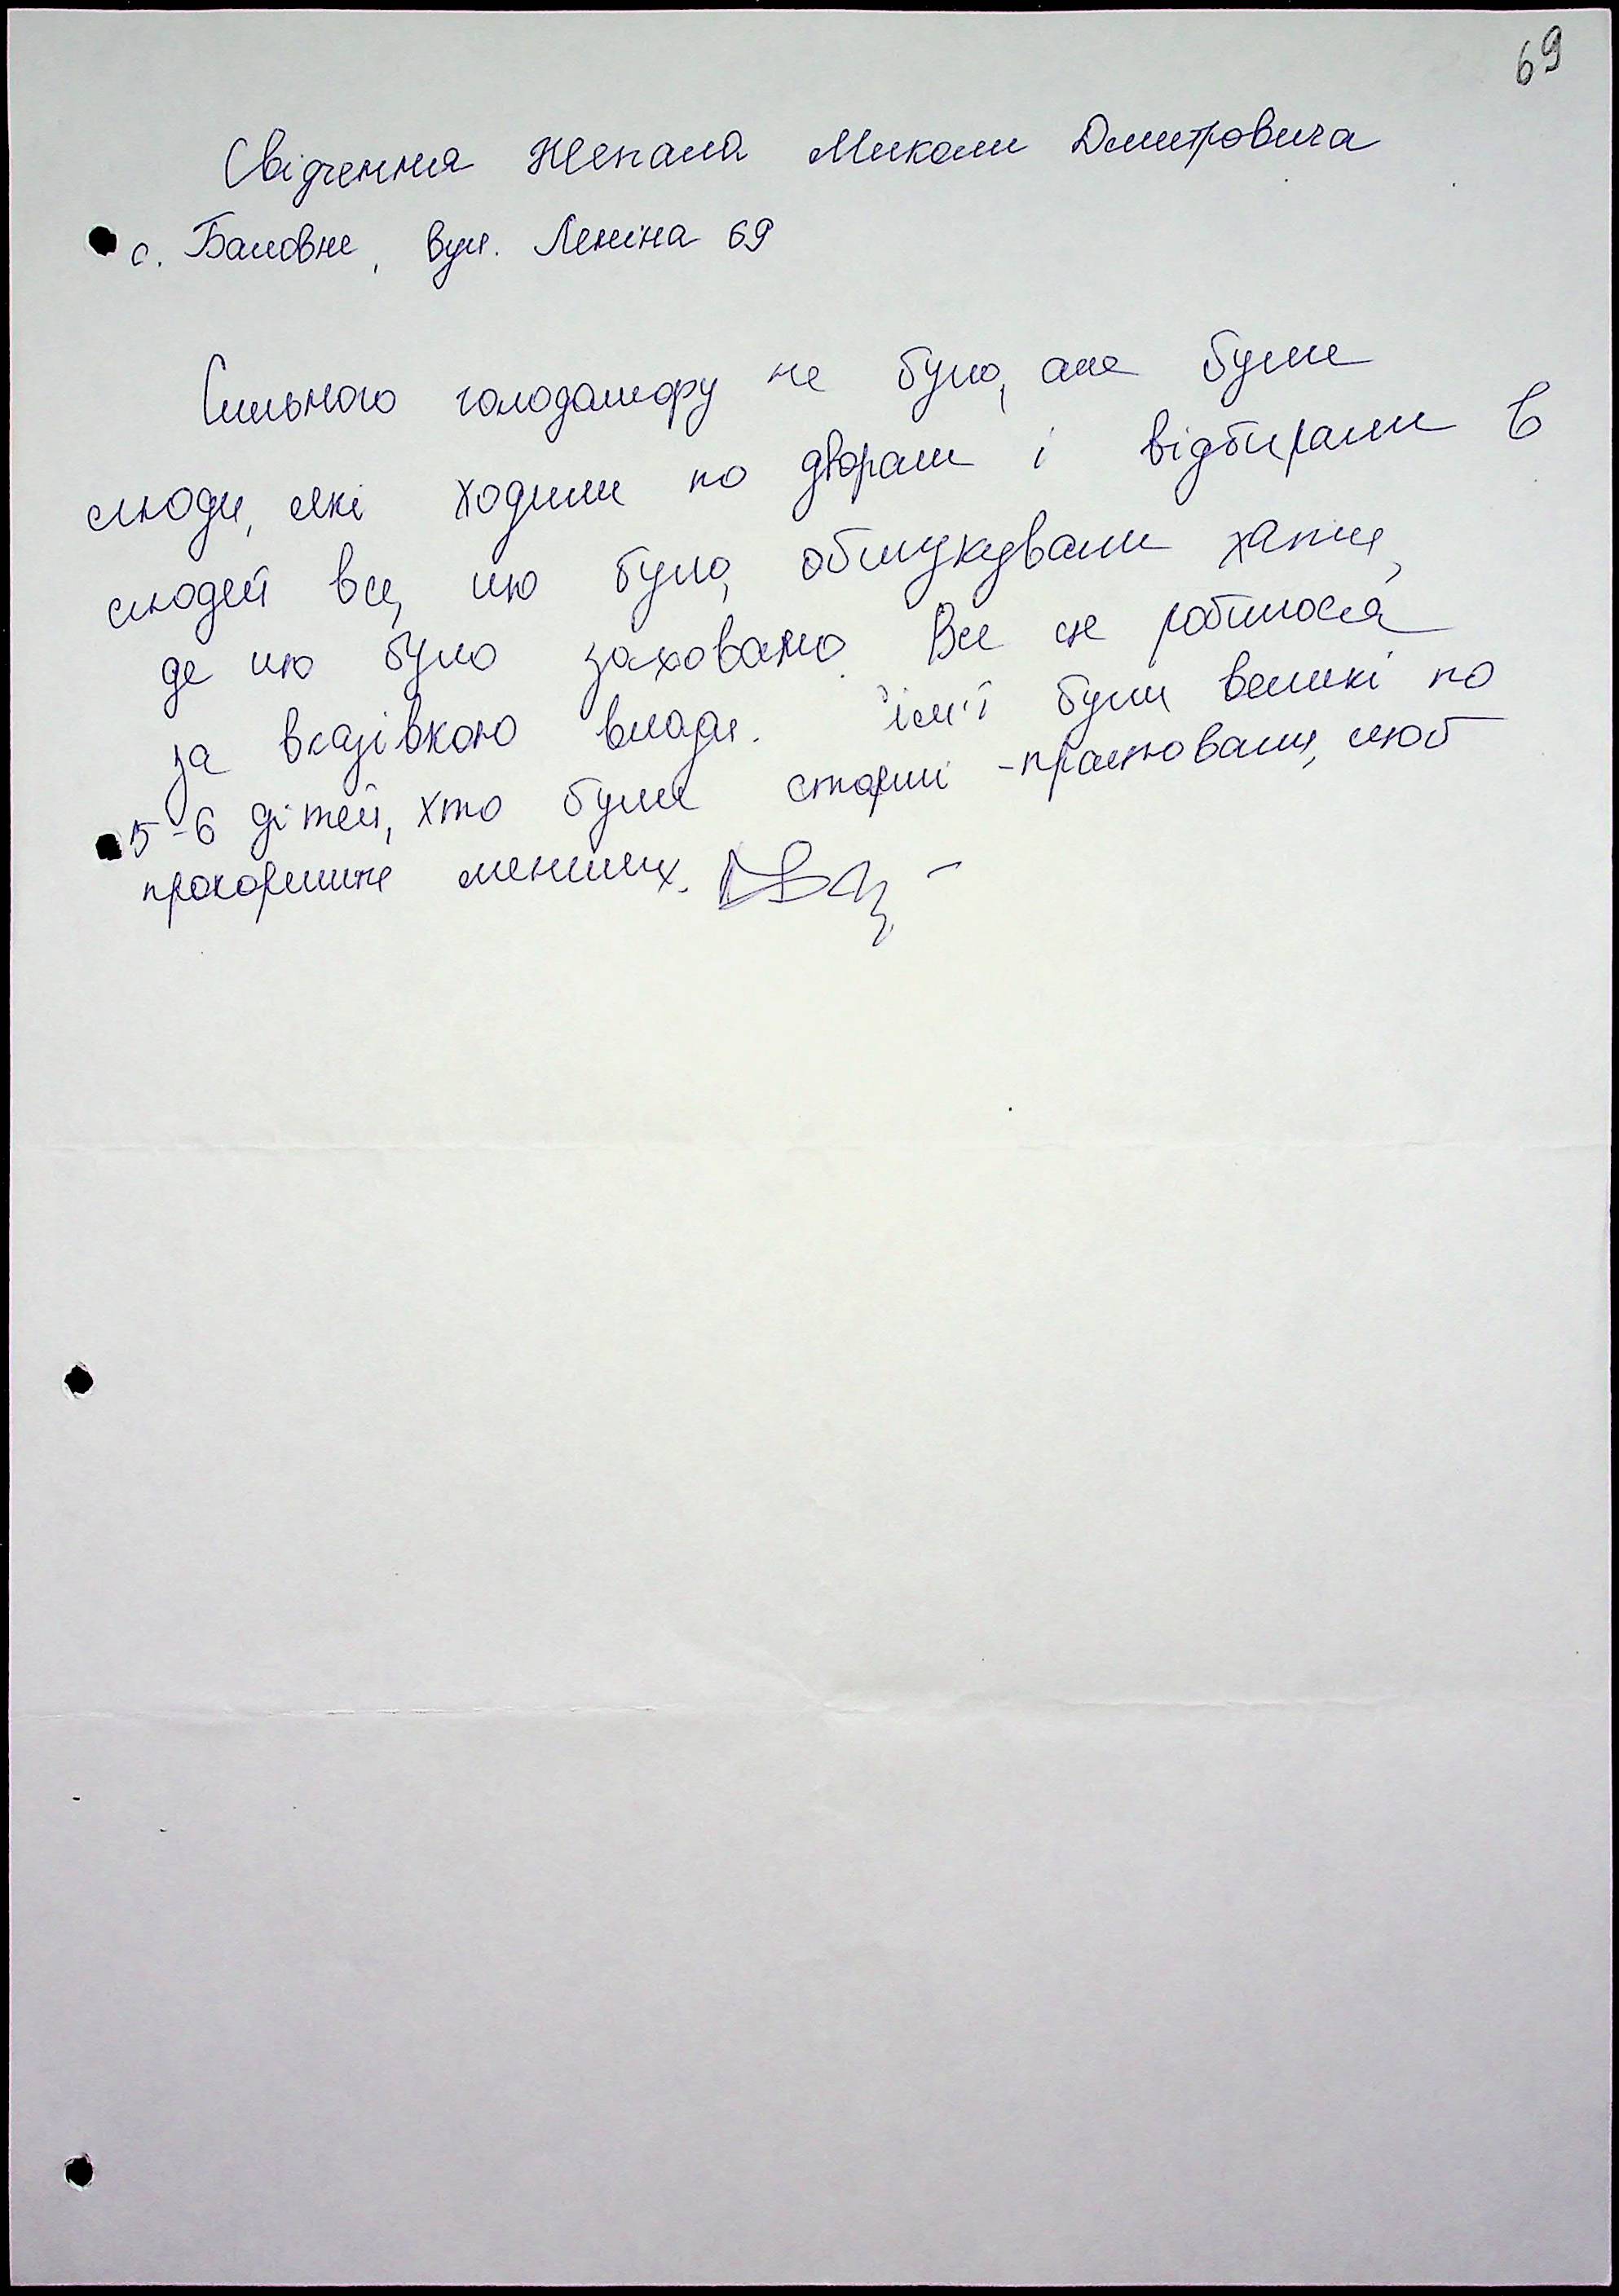 69
Свідчення Жепала Миколи Дмитровича
с. Баловне, вул. Леніна 69
Сильного голодомору не було, але були
люди, які ходили по дворам і відбирали в
людей все, що було, обшукували хати,
де що було заховано. Все це робилося
за вказівкою влади. Сім'ї були великі по
5-6 дітей, хто були старші - працювали, щоб
прокормити менших.